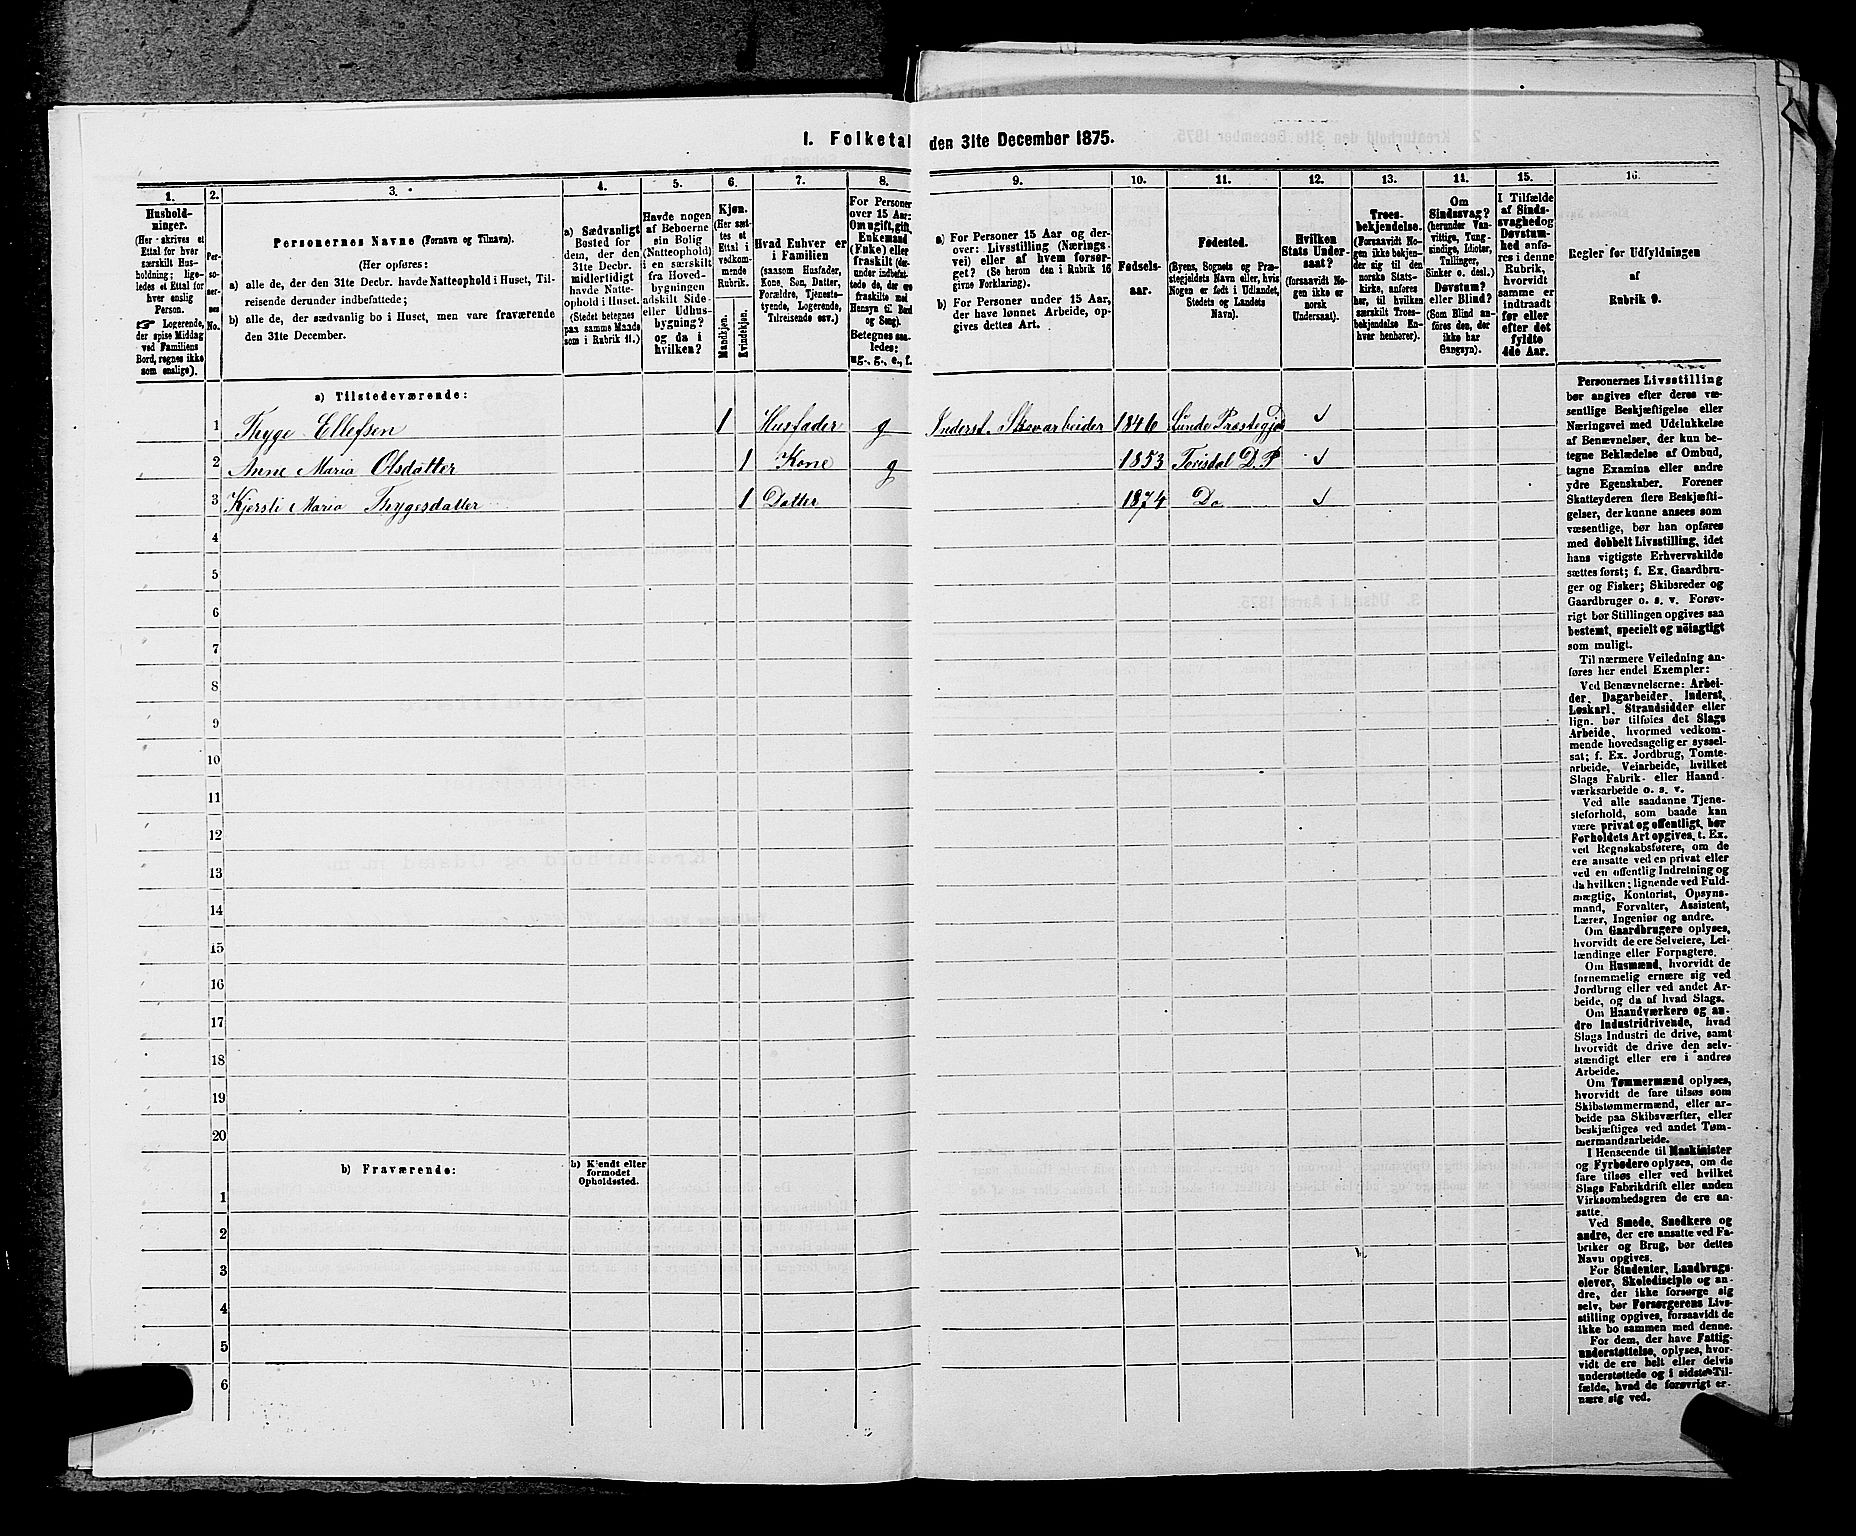 I. Folketal den 31te December 1875.
1.
Hushold-
ninger.
(Her skrives et
Ettal for hver
særskilt Hus-
holdning; lige-
ledes et Ettal for
hver enslig
Person.
☞ Logerende,
der spise Middag
ved Familiens
Bord, regnes ikke
som enslige).
2.
Per-
so-
ner-
nes
No.
3.
Personernes Navne (Fornavn og Tilnavn).
(Her opføres:
a) alle de, der den 31te Decbr. havde Natteophold i Huset, Til-
reisende derunder indbefattede;
b) alle de, der sædvanlig bo i Huset, men vare fraværende
den 31te December.
4.
a) Sædvanligt
Bosted for
dem, der den
31te Decbr.
midlertidigt
havde Natte-
ophold i Huset.
(Stedet betegnes
paa samme Maade
som i Rubrik 11.)
5.
Havde nogen
af Beboerne
sin Bolig
(Natteophold)
i en særskilt
fra Hoved-
bygningen
adskilt Side-
eller Udhus-
bygning?
og da i
hvilken?
6.
Kjøn.
(Her sæt-
tes et
Ettal i
vedkom-
mende
Rubrik.
Mandkjøn.
Kvindekjøn.
7.
Hvad Enhver er
i Familien
(saasom Husfader,
Kone, Søn, Datter,
Forældre, Tjeneste-
tyende, Logerende,
Tilreisende osv.)
8.
For Personer
over 15 Aar:
Om ugift, gift,
Enkemand
(Enke) eller
fraskilt (der-
under indbefat-
tede de, der ere
fraskilte med
Hensyn til Bord
og Seng).
Betegnes saa-
ledes:
ug., g., e., f.
9.
a) For Personer 15 Aar og der-
over: Livsstilling (Nærings-
vei) eller af hvem forsør-
get? (Se herom den i Rubrik 16
givne Forklaring).
b) For Personer under 15 Aar,
der have lønnet Arbeide, op-
gives dettes Art.
10.
Fødsels-
aar.
11.
Fødested.
(Byens, Sognets og Præ-
stegjeldets Navn eller, hvis
Nogen er født i Udlandet,
Stedets og Landets
Navn).
12.
Hvilken
Stats Under-
saat?
(forsaavidt No-
gen ikke er
norsk
Undersaat).
13.
Troes-
bekjendelse.
(Forsaavidt No-
gen ikke bekjen-
der sig til den
norske Stats-
kirke, anføres
her, til hvilken
særskilt Troes-
bekjendelse En-
hver henhører).
14.
Om
Sindssvag?
(herunder Van-
vittige, Tung-
sindige, Idioter,
Tullinger,
Sinker o. desl.)
Døvstum?
eller Blind?
(Som Blind an-
føres den, der
ikke har
Gangsyn).
15.
I Tilfælde
af Sinds-
svaghed og
Døvstum-
hed anfø-
res i denne
Rubrik,
hvorvidt
samme er
indtraadt
før eller
efter det
fyldte
4de Aar.
16.
Regler for Udfyldningen
af
Rubrik 9.
a) Tilstedeværende:
1 Thyge Ellefsen 1 Husfader g Inderst. Skovarbeider 1846 Lunde Præstegj
2 Anne Maria Olsdatter 1 Kone g 1853 Torisdal D. P
3 Kjersti Maria Thygesdatter 1 Datter 1874 Do
4
5
6
7
8
9
10
11
12
13
14
15
16
17
18
19
20
b) Fraværende:
b) Kjendt eller
formodet
Opholdssted.
1
2
3
4
5
6
Personernes Livsstilling
bør angives efter deres væ-
sentlige Beskjæftigelse eller
Næringsvei med Udelukkelse
af Benævnelser, der kun be-
tegne Beklædelse af Ombud,
tagne Examina eller andre
ydre Egenskaber. Forener
Skatteyderen flere Beskjæfti-
gelser, der kunne ansees som
væsentlige, bør han opføres
med dobbelt Livsstilling, idet
hans vigtigste Erhvervskilde
sættes først; f. Ex. Gaardbru-
ger og Fisker; Skibsreder og
Gaardbruger o. s. v. Forøv-
rigt bør Stillingen opgives saa
bestemt, specielt og nöiagtigt
som muligt.
Til nærmere Veiledning an-
føres her endel Exempler:
Ved Benævnelserne: Arbei-
der, Dagarbeider, Inderst,
Løskarl, Strandsidder eller
lign. bør tilføies det Slags
Arbeide, hvormed vedkom-
mende hovedsagelig er syssel-
sat; f. Ex. Jordbrug, Tomte-
arbeide, Veiarbeide, hvilket
Slags Fabrik- eller Haand-
værksarbeide o. s. v.
Ved alle saadanne Tjene-
steforhold, som baade kan
være privat og offentligt, bør
Forholdets Art opgives, t. Ex.
ved Regnskabsførere, om de
ere ansatte ved en privat eller
ved en offentlig Indretning og
da hvilken; lignende ved Fuld-
mægtig, Kontorist, Opsyns-
mand, Forvalter, Assistent,
Lærer, Ingeniør og andre.
Om Gaardbrugere oplyses,
hvorvidt de ere Selveiere, Lei-
lændinge eller Forpagtere.
Om Husmænd, hvorvidt de
fornemmelig ernære sig ved
Jordbrug eller ved andet Ar-
beide, og da af hvad Slags.
Om Haandværkere og an-
dre Industridrivende, hvad
Slags Industri de drive, samt
hvorvidt de drive den selv-
stændigt eller ere i andres
Arbeide.
Om Tømmermænd oplyses,
hvorvidt de fare tilsøs som
Skibstømmermænd, eller ar-
beide paa Skibsværfter, eller
beskjæftiges ved andet Tøm-
mermandsarbeide.
I Henseende til Maskinister
og Fyrbødere oplyses, om de
fare tilsøs eller ved hvilket
Slags Fabrikdrift eller anden
Virksomhedsgren de ere an-
satte.
Ved Smede, Snedkere og
andre, der ere ansatte ved Fa-
briker og Brug, bør dettes
Navn opgives.
For Studenter, Landbrugs-
elever, Skoledisciple og an-
dre, der ikke forsørge sig
selv, bør Forsørgerens Livs-
stilling opgives, forsaavidt de
ikke bo sammen med denne.
For dem, der have Fattig-
understøttelse, oplyses, hvor-
vidt de ere helt eller delvis
understøttede og i sidste Til-
fælde, hvad de forøvrigt er-
nære sig ved.